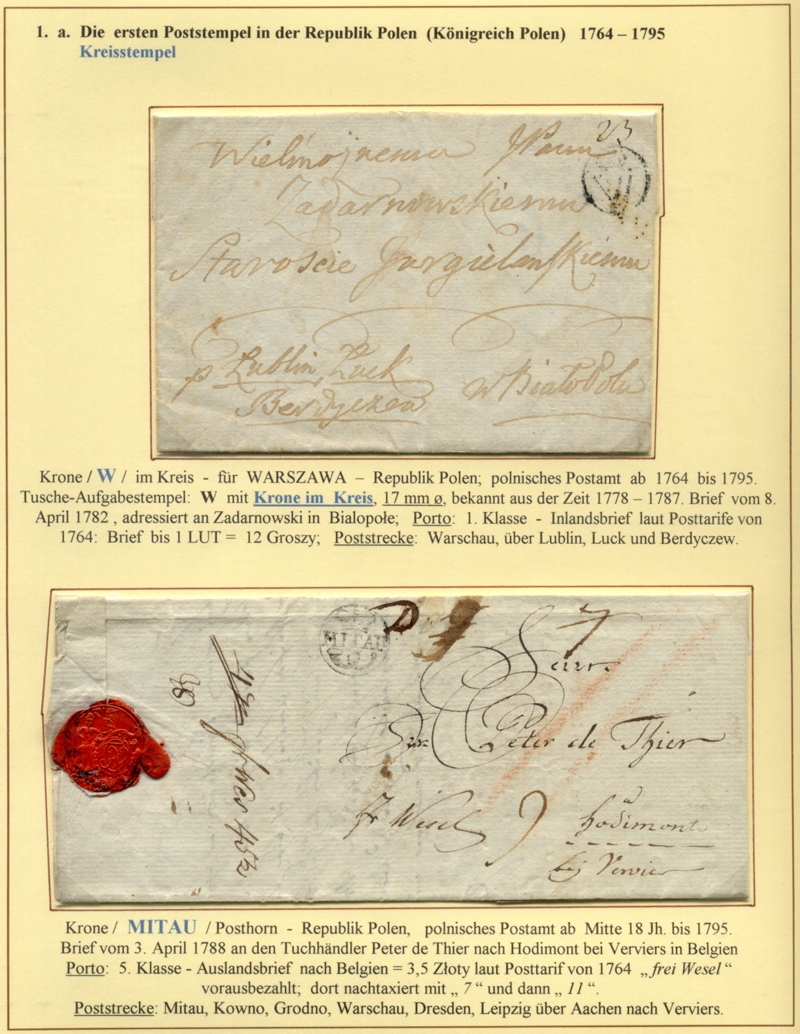 1. a. Die ersten Poststempel in der Republik Polen (Königreich Polen) 1764 – 1795
Kreisstempel
23
Wielmożnemu JPanu
W
Zadarnowskiemu
Staroscie
p Lublin, Luck
Berdyczew
w Białopolu
Krone / W / im Kreis - für WARSZAWA – Republik Polen; polnisches Postamt ab 1764 bis 1795.
Tusche-Aufgabestempel: W mit Krone im Kreis, 17 mm ø, bekannt aus der Zeit 1778 – 1787. Brief vom 8.
April 1782 , adressiert an Zadarnowski in Bialopołe; Porto: 1. Klasse - Inlandsbrief laut Posttarife von
1764: Brief bis 1 LUT = 12 Groszy; Poststrecke: Warschau, über Lublin, Luck und Berdyczew.
MITAU
7
Herrn
Peter de Thier
fr Wesel
hodimont
bej Vervier
Krone / MITAU / Posthorn - Republik Polen, polnisches Postamt ab Mitte 18 Jh. bis 1795.
Brief vom 3. April 1788 an den Tuchhändler Peter de Thier nach Hodimont bei Verviers in Belgien
Porto: 5. Klasse - Auslandsbrief nach Belgien = 3,5 Złoty laut Posttarif von 1764 „frei Wesel“
vorausbezahlt; dort nachtaxiert mit „ 7 “ und dann „ 11 “.
Poststrecke: Mitau, Kowno, Grodno, Warschau, Dresden, Leipzig über Aachen nach Verviers.